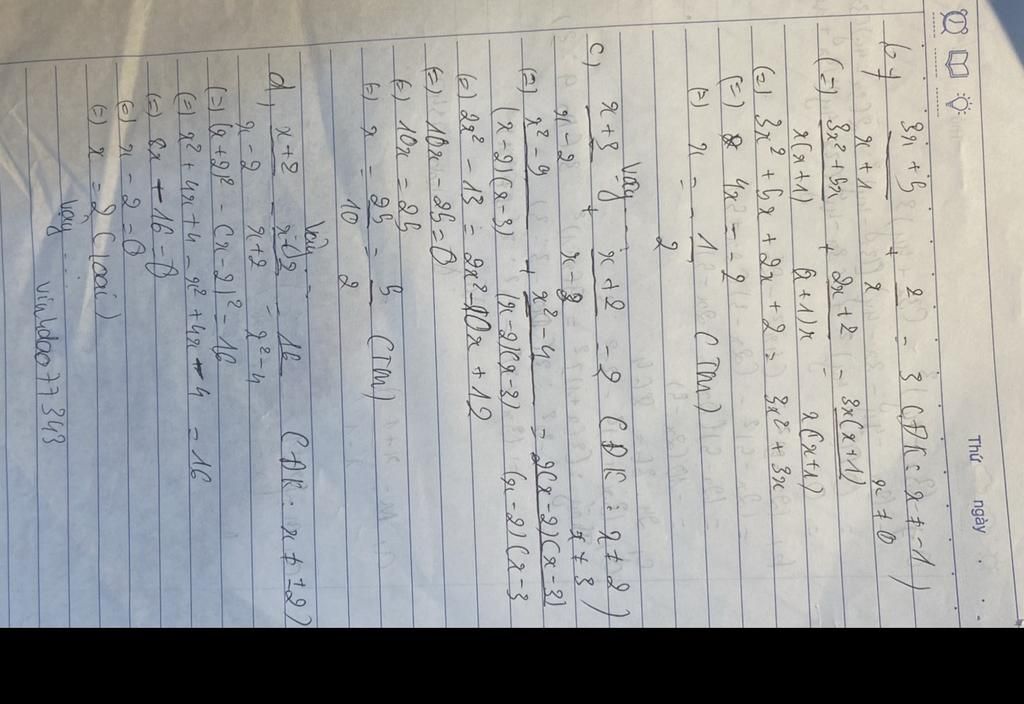 Thứ ngày
b, (3x + 5)/(x + 1) + 2/x = 3 (ĐK: x ≠ -1)
x ≠ 0
(=) (3x² + 5x)/(x(x+1)) + (2x + 2)/((x+1)x) = (3x(x+1))/(x(x+1))
(=) 3x² + 5x + 2x + 2 = 3x² + 3x
(=) 4x = -2
(=) x = -1/2 (TM)
Vậy
c, (x+3)/(x-2) + (x+2)/(x-3) = 2 (ĐK: x ≠ 2
x ≠ 3)
(=) (x² - 9)/((x-2)(x-3)) + (x² - 4)/((x-2)(x-3)) = (2(x-2)(x-3))/((x-2)(x-3
(=) 2x² - 13 = 2x² - 10x + 12
(=) 10x - 25 = 0
(=) 10x = 25
(=) x = 25/10 = 5/2 (TM)
Vậy
d, (x+2)/(x-2) - (x-2)/(x+2) = 16/(x²-4) (ĐK: x ≠ ±2)
(=) (x+2)² - (x-2)² = 16
(=) x² + 4x + 4 - x² + 4x - 4 = 16
(=) 8x - 16 = 0
(=) x - 2 = 0
(=) x = 2 (loại)
Vậy ...
vinhdao077343